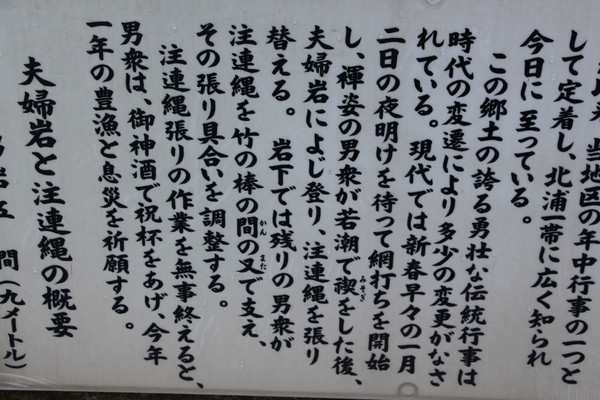 当地区の年中行事の一つと
して定着し、北浦一帯に広く知られ
今日に 至っている。
この郷土の誇る勇壮な伝統行事は
時代の変遷により多少の変更がなさ
れている。現代では新春早々の一月
二日の夜明けを待って網打ちを開始
し、褌姿の男衆が若潮で禊をした後、
みそぎ
夫婦岩によじ登り、注連縄を張り
替える。 岩下では残りの男衆が
注連縄を竹の棒の間の又で支え、
かん また
その張り具合いを調整する。
注連縄張りの作業を無事終えると、
男衆は、御神酒で祝杯をあげ、今年
一年の豊漁と息災を祈願する。
夫婦岩と注連縄の概要
岩 五 間(九メートル)